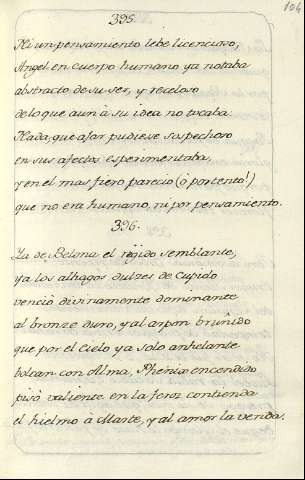 104
395.
Ni un pensamiento lebe licencioso,
Angel en cuerpo humano ya notaba
abstracto de su ser, y receloso
de lo que aun à su idea no tocaba:
Nada, que afar pudiese sospechoso
en sus afectos esperimentaba,
y en el mas fiero parecio (ò portento!)
que no era humano, ni por pensamiento.
396.
Ya de Belona el rijido semblante,
ya los alhagos dulzes de Cupido
venció divinamente dominante
al bronze duro, y al arpon bruñido
que por el Cielo ya solo anhelante
bolcan con Alma, Phenix encendido
pisò valiente en la feroz contienda
el hielmo à Marte, y al amor la venda.